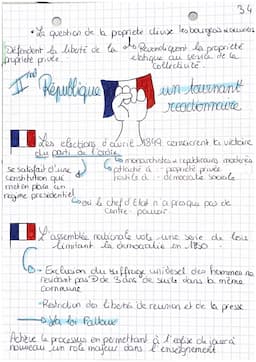 34
• La question de la propriété divise les bourgeois et ouvriers
Défendent la liberté de la propriété privée
Revendiquent la propriété étatique au service de la collectivité
IInde République un tournant réactionnaire
Les élections d'avril 1849 consacrent la victoire
du parti de l'ordre
monarchistes et républicains modérés
attaché à propriété privée
hostiles à démocratie sociale
se satisfait d'une constitution qui met en place un régime présidentiel
où le chef d'Etat n'a presque pas de contre-pouvoir
L'assemblée nationale vote une série de lois
limitant la démocratie en 1850
- Exclusion du suffrage universel des hommes ne
résidant pas de 3 ans de suite dans la même
commune
- Restriction des libertés de réunion et de la presse
- La loi Falloux
Achève le processus en permettant à l'église de jouer à
nouveau un rôle majeur dans l'enseignement